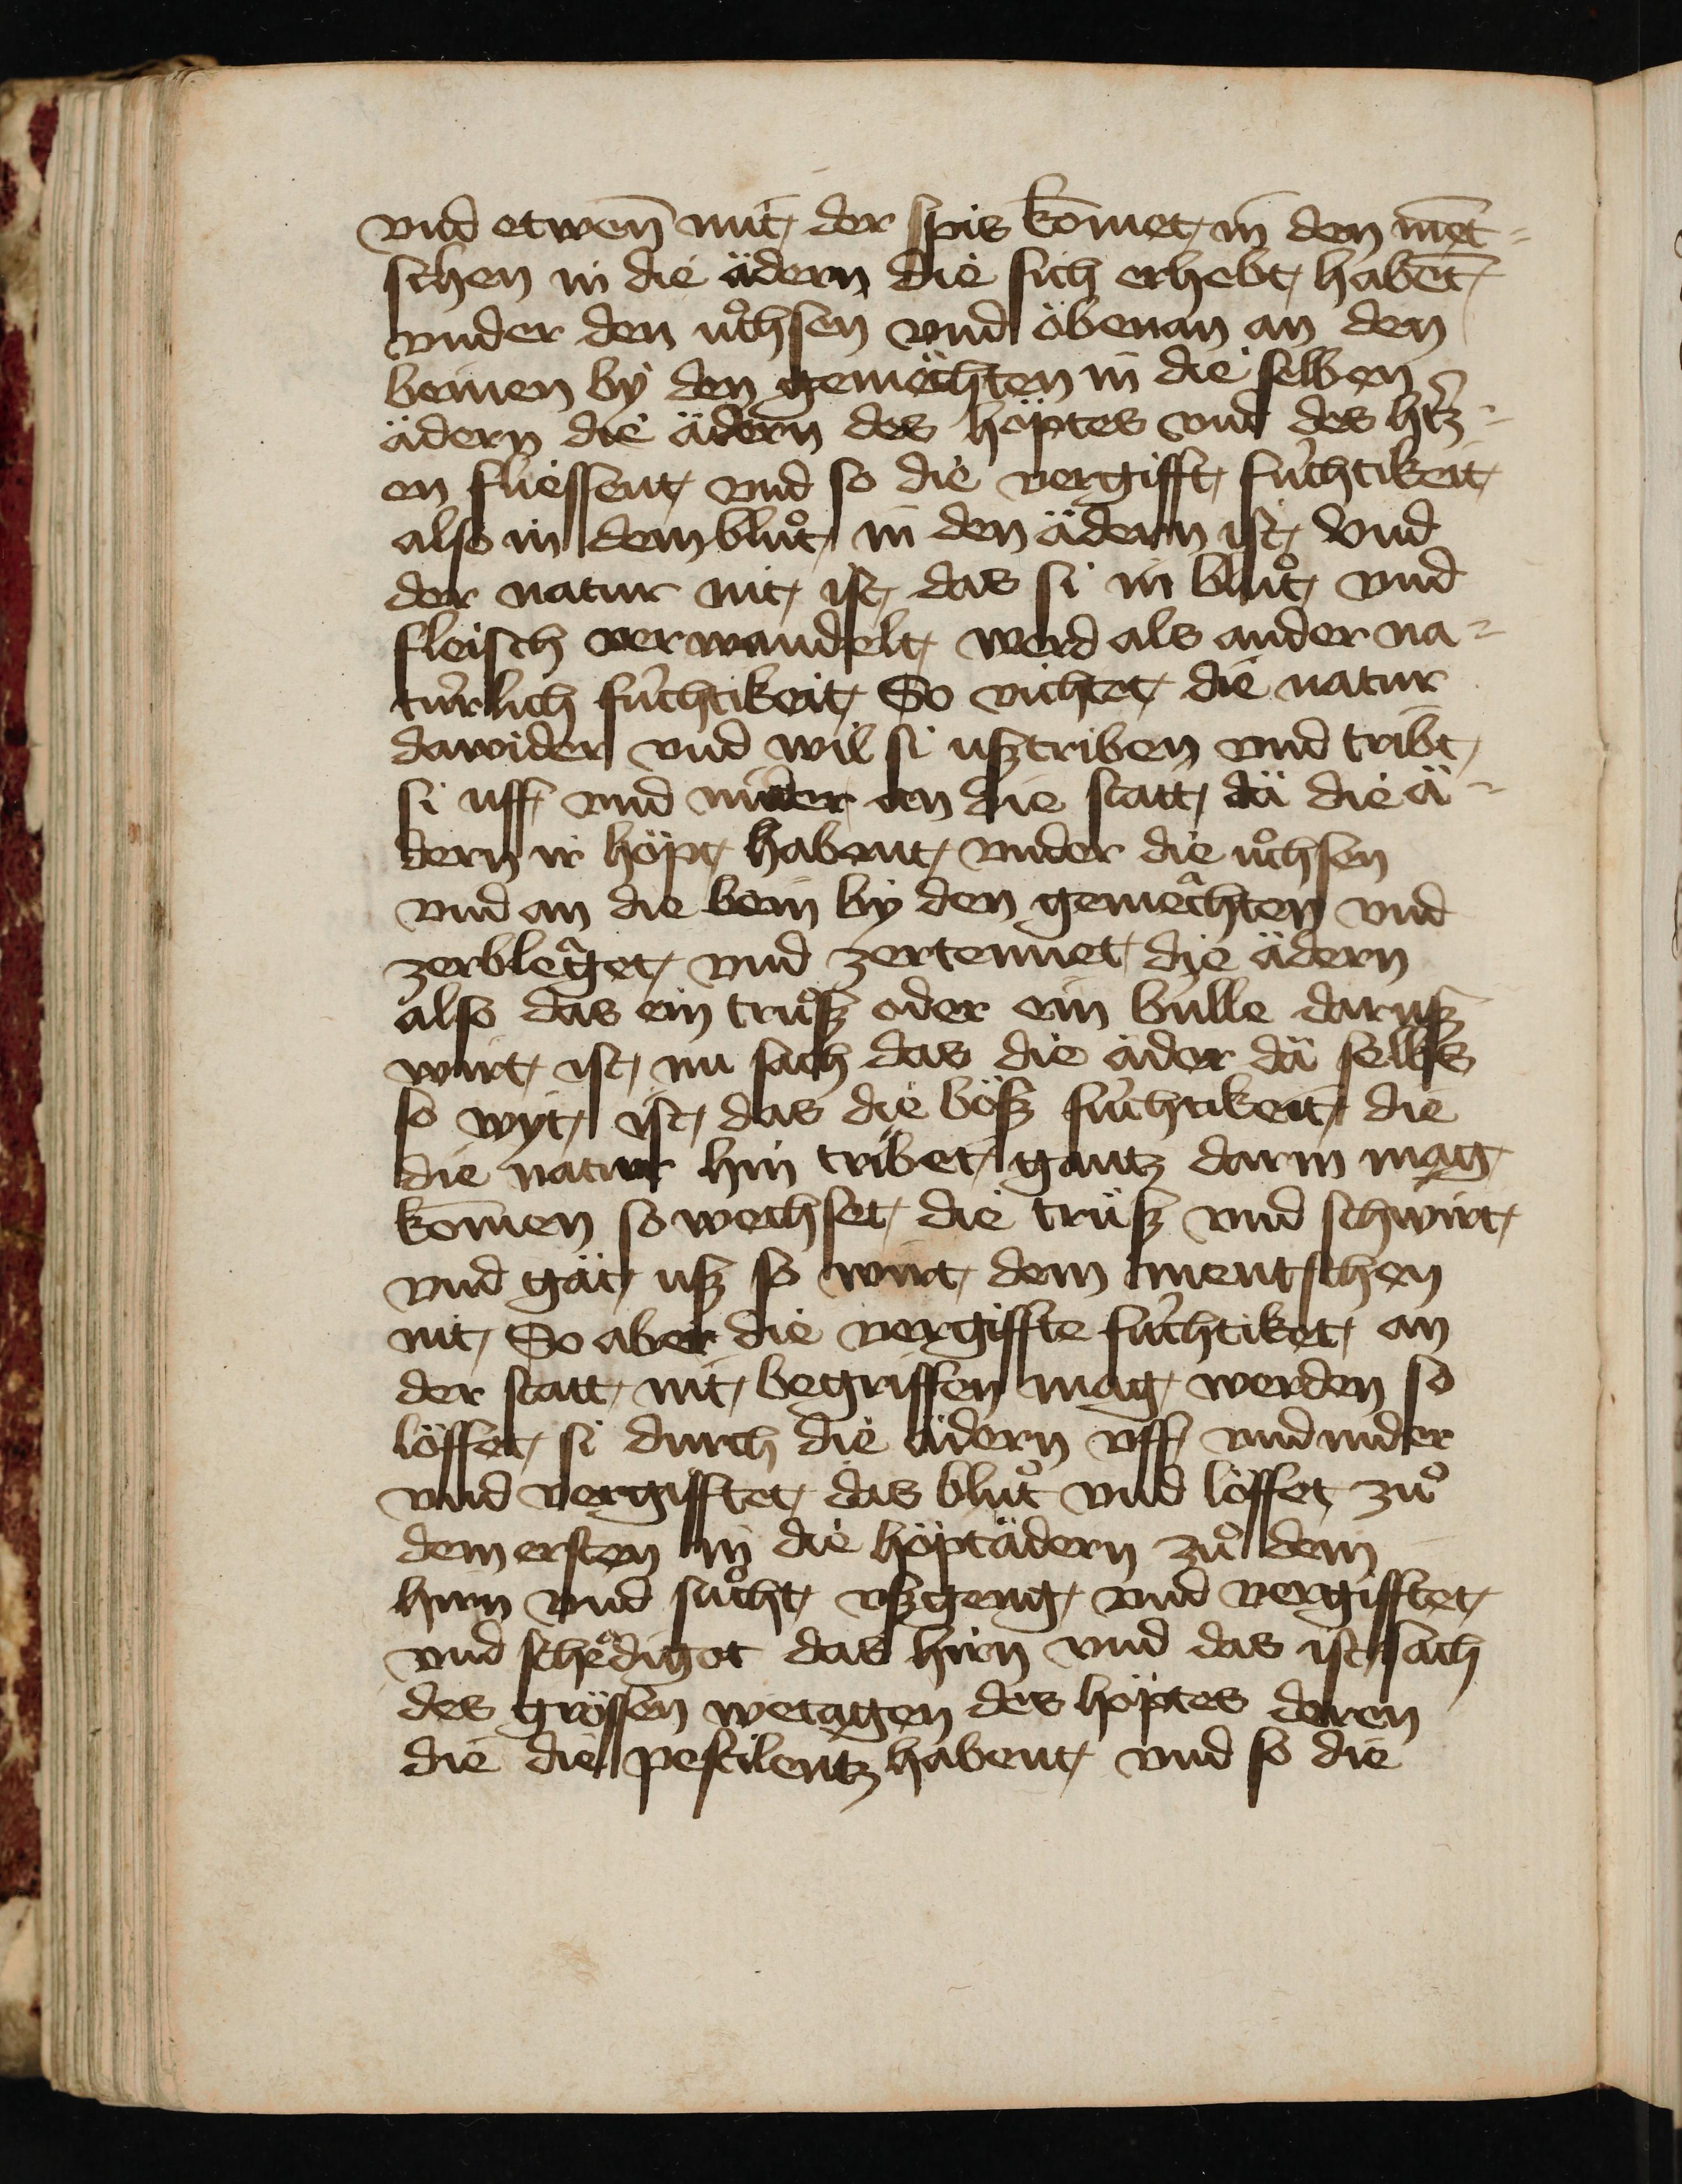 vnd etwen̄ mit der spis kōmet in den mēt=
schen in die ädern die sich erhebt habēt
vnder den uͦchsen vnd öbenan an den
beinen by den gemächten in die selben
ädern die ädern des höptes vnd des htz̄=
en fliessent vnd so die vergifft fuͤchtikeit
also in dem bluͦt in den ädern ist Vnd
der natur nit ist das si in bluͦt vnd
fleisch verwandelt werd als ander na=
tuͤrlich fuͤchtikeit So richtet die natur
dawider vnd wil si usztriben vnd tribt
si uff vnd nider an die statt dä die ä=
dern ir höpt habent vnder die uͦchsen
vnd an die bein by den gemeͣchten vnd
zerbleͣget vnd zertennet die ädern
also das ein truͦsz oder ein bulle darusz
wirt ist nu sach das die äder dä selbs
so wyt ist das die bösz fuͤchtikeit die
die natur hin tribet gantz darin mag
kōmen so wechset die truͤsz vnd schwirt
vnd gät usz so wirt dem mentschen
nit So aber die vergiffte fuͤchtiket an
der statt nit begriffen mag werden so
löffet si durch die ädern vff vnd nider
vnd vergifftet das bluͦt vnd löffet zuͦ
dem ersten in die höptädern zuͦ dem
hirn vnd suͦcht vszgeng vnd vergifftet
vnd scheͣdigot das hirn vnd das ist sach
des grössen wetagen des höptes deren
die die pestilentz habent vnd so die